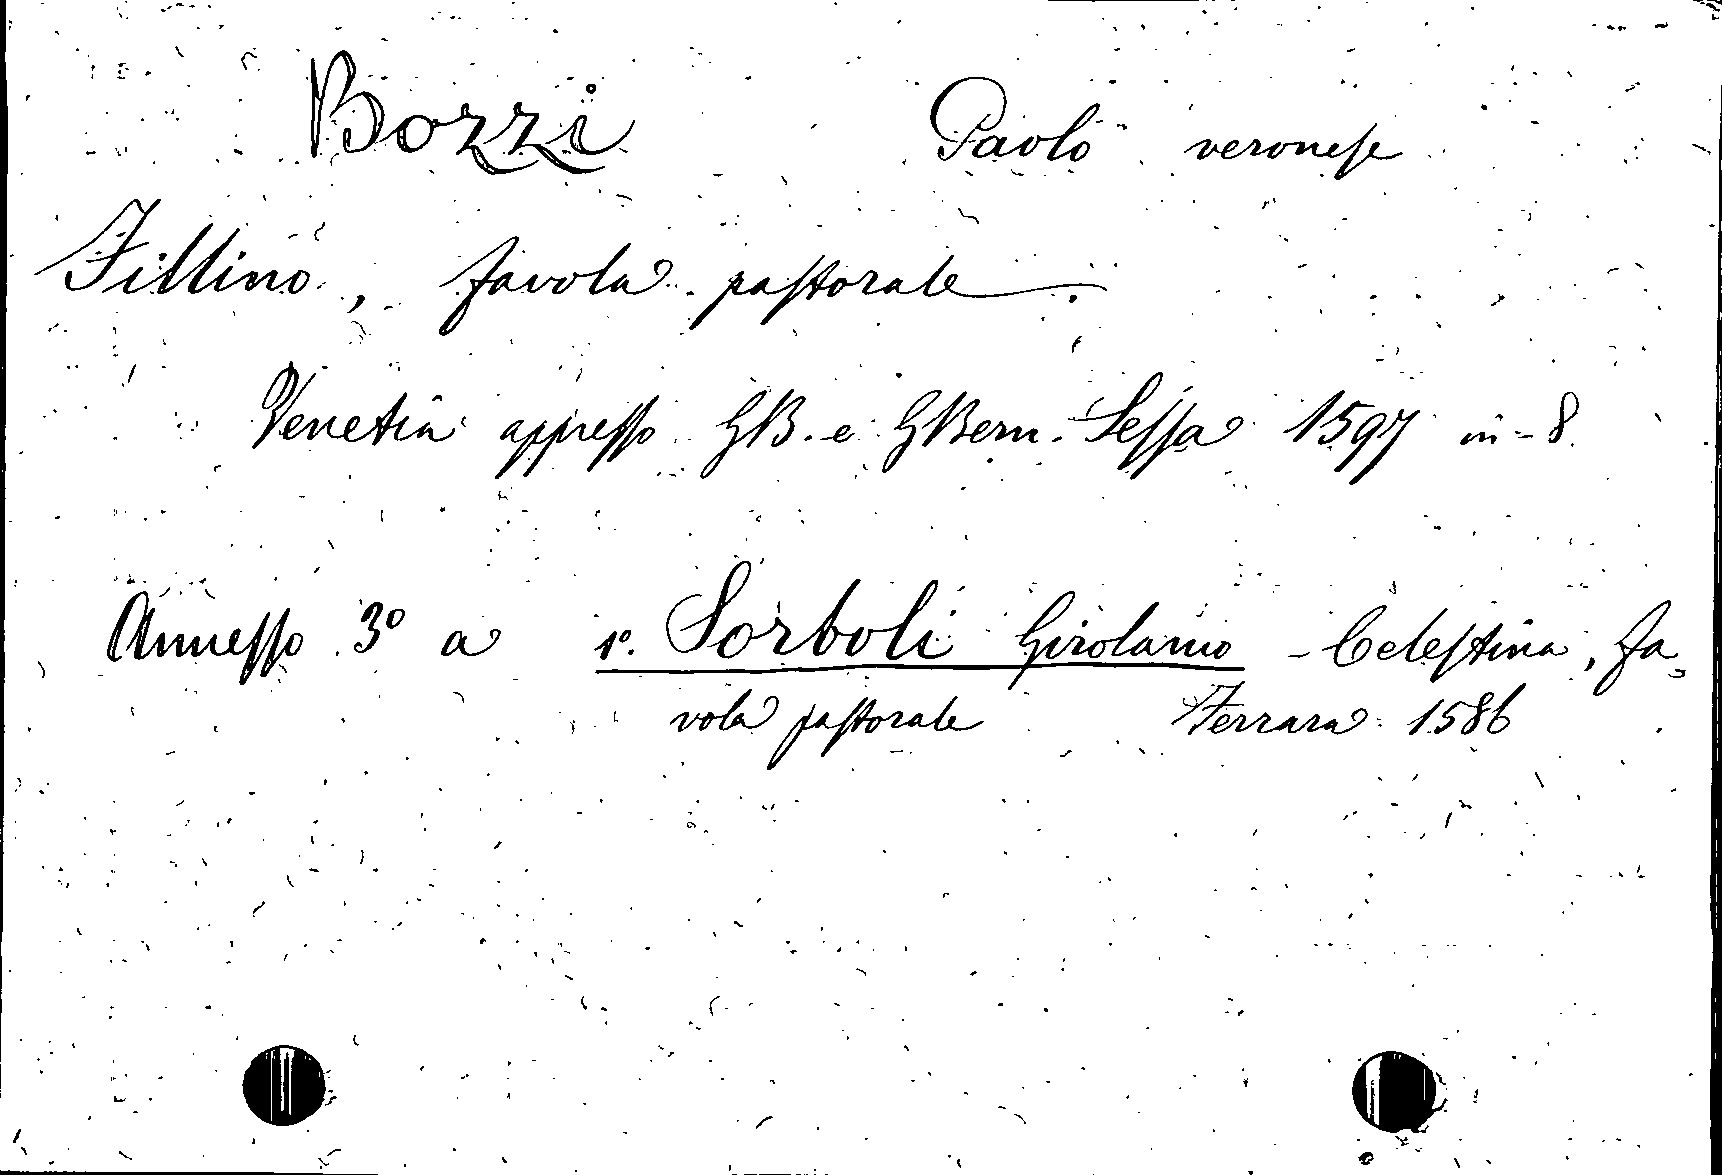 Bozzi Paolo veronese
Fillino, favola pastorale.
Venetia appresso GB. e GBern. Sessa 1597 in-8.
Annesso 3º a 1º. Sorboli Girolamo - Celestina, fa-
vola pastorale Ferrara 1586